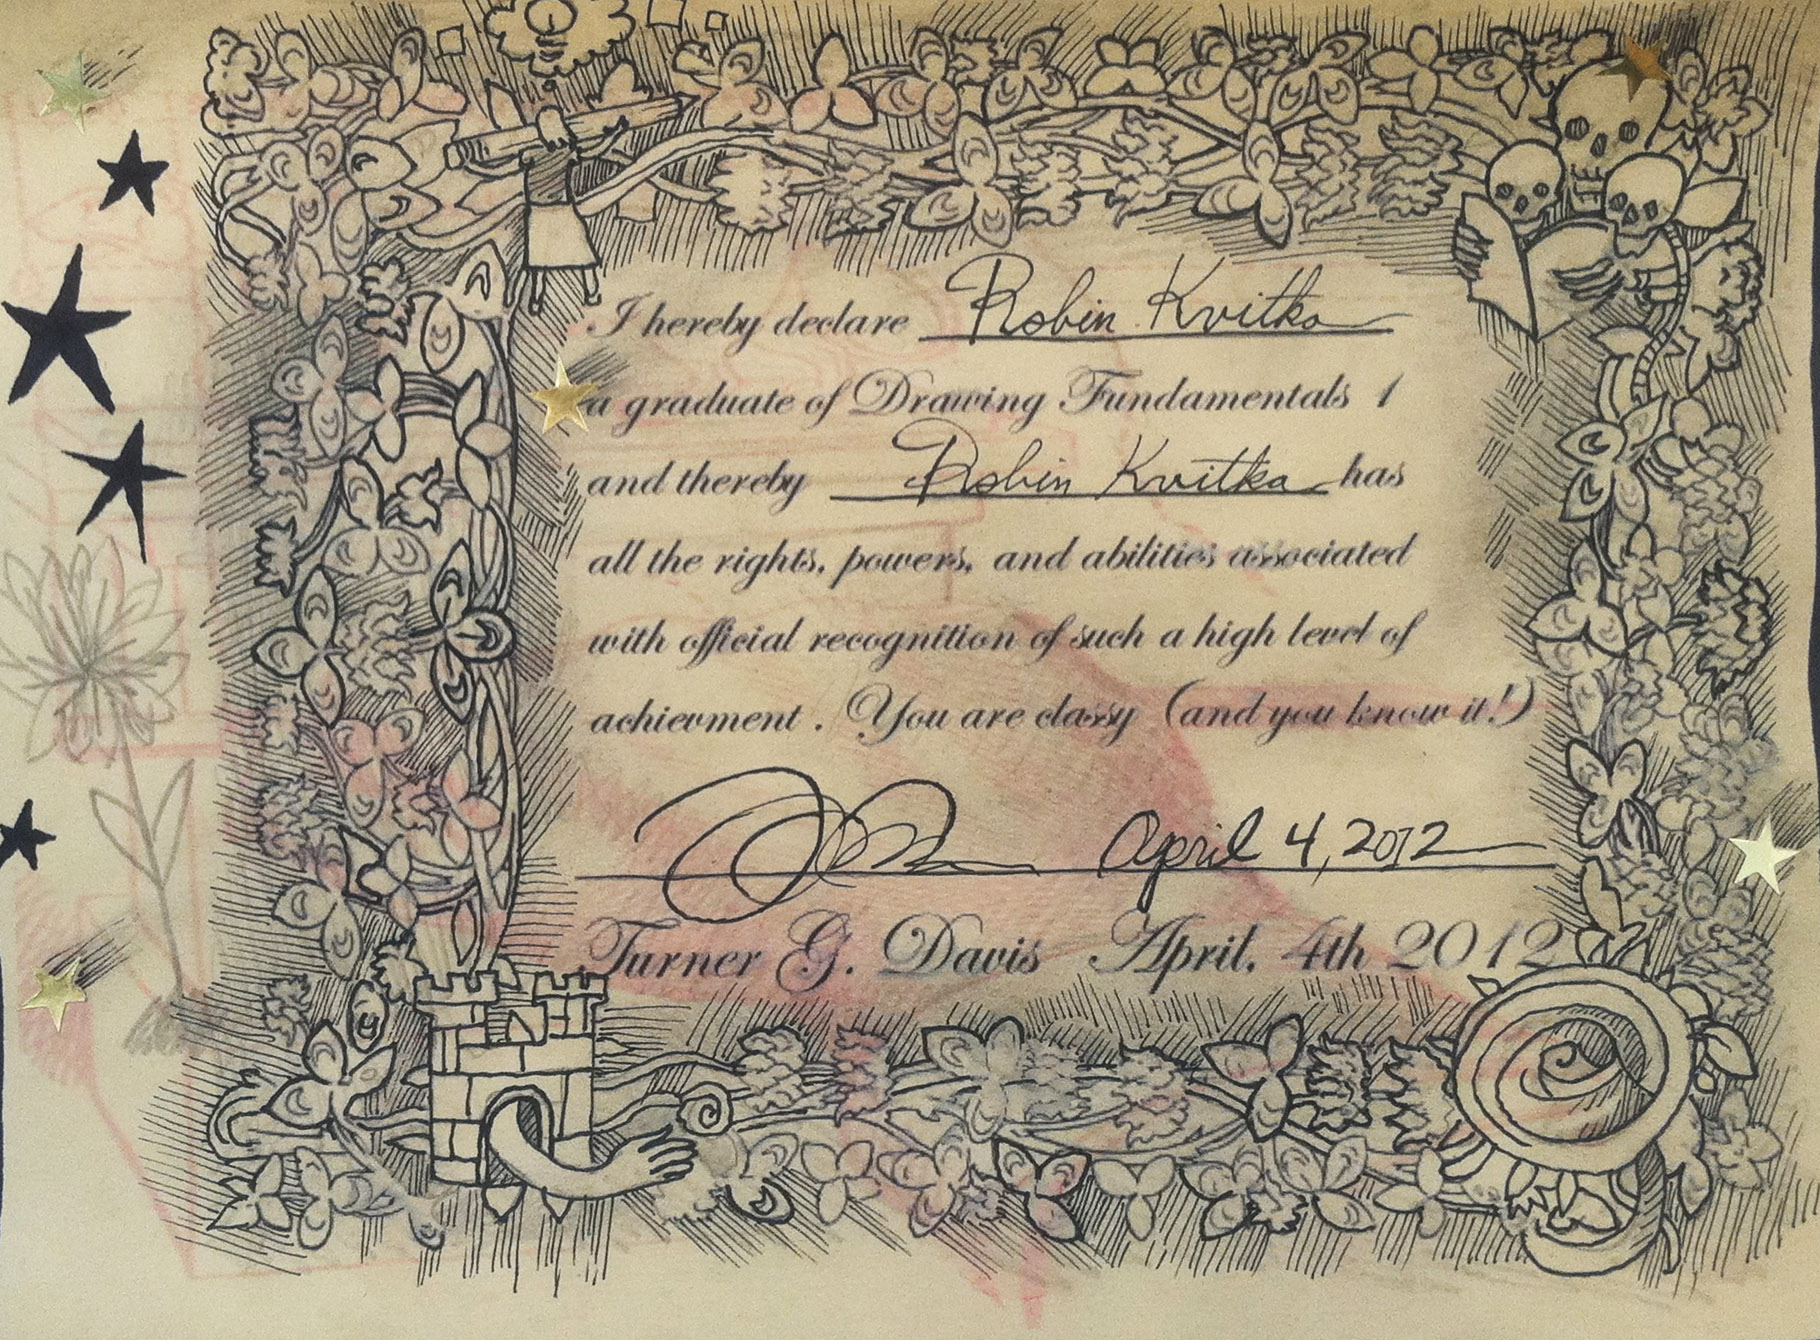 I hereby declare Robin Kvitka
a graduate of Drawing Fundamentals 1
and thereby Robin Kvitka has
all the rights, powers, and abilities associated
with official recognition of such a high level of
achievment. You are classy (and you know it!)
April 4, 2012
Turner G. Davis April, 4th 2012